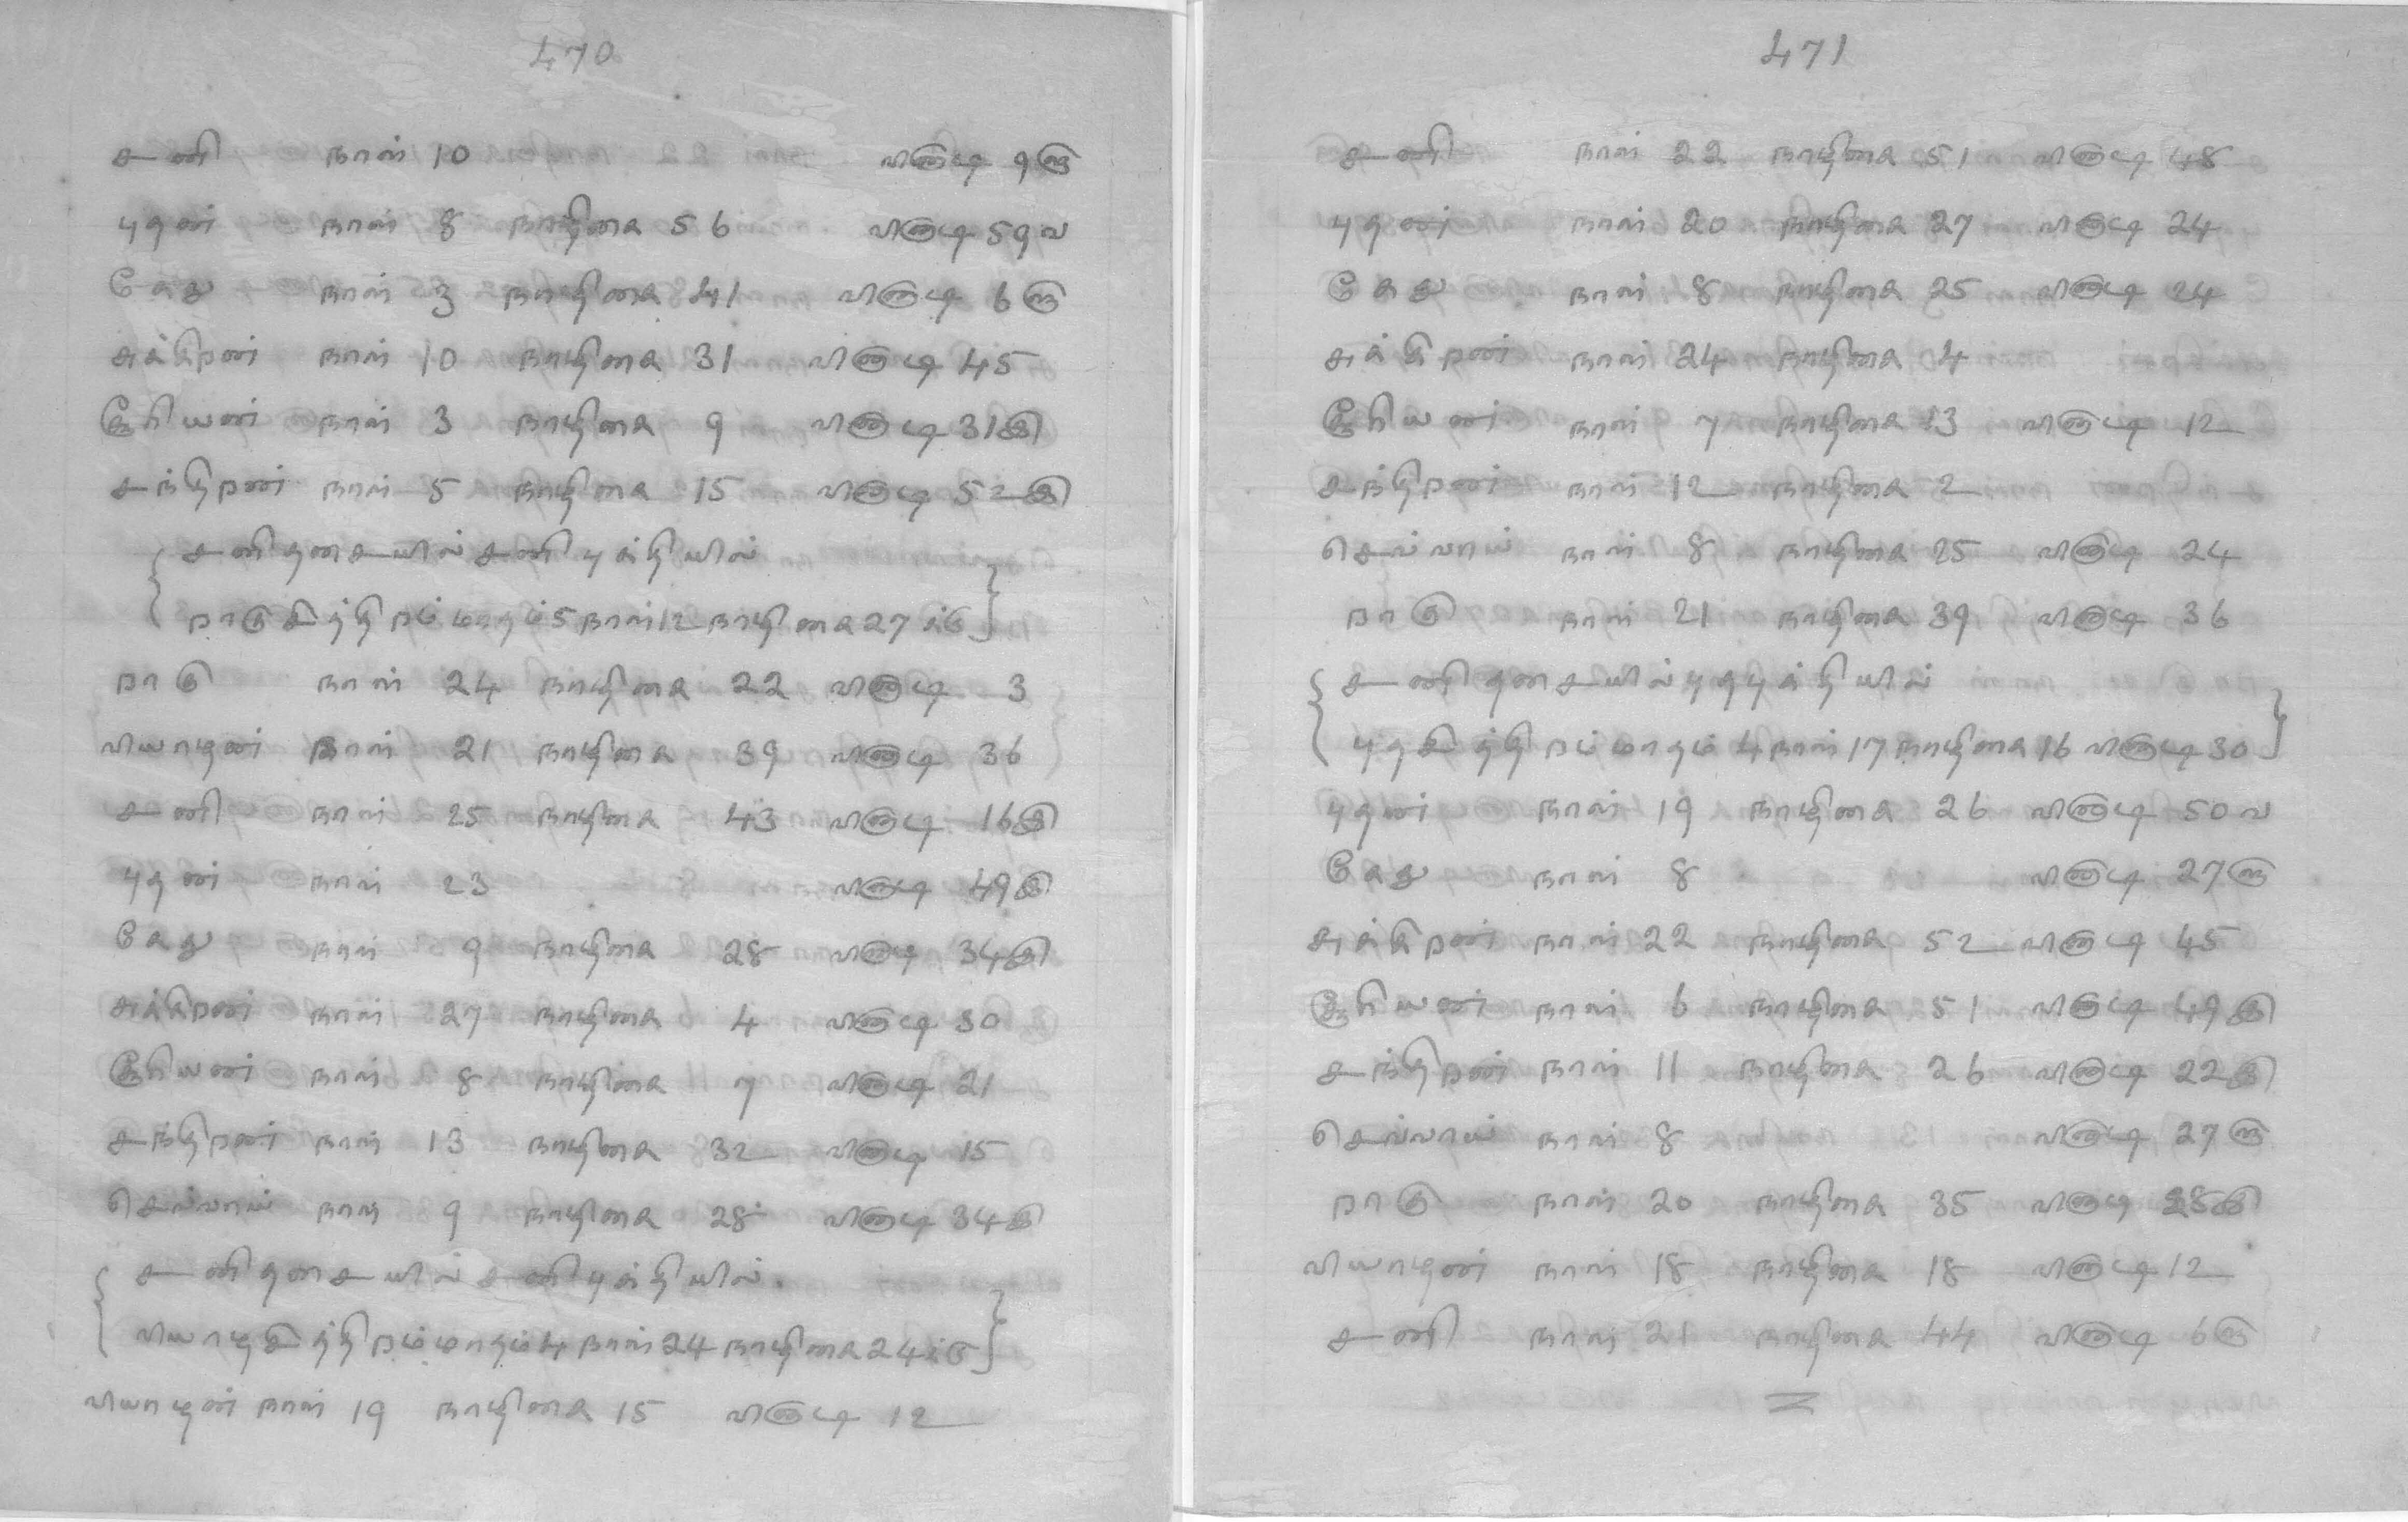 470
சனி நாள் 10 விநாடி 9௵
புதன் நாள் 8 நாழிகை 56 விநாடி 59வ
கேது நாள் 3 நாழிகை 41 விநாடி 6
சுக்கிரன் நாள் 10 நாழிகை 31 விநாடி 45
சூரியன் நாள் 3 நாழிகை 9 விநாடி 31
சந்திரன் நாள் 5 நாழிகை 15 விநாடி 52
சனி தசையில் சனி புக்தியில்
ராகு சித்திரம் மாதம் 5 நாள் 12 நாழிகை 27 க்கு
ராகு நாள் 24 நாழிகை 22 விநாடி 3
வியாழன் நாள் 21 நாழிகை 39 விநாடி 36
சனி நாள் 25 நாழிகை 43 விநாடி 16
புதன் நாள் 23 விநாடி 49
கேது நாள் 9 நாழிகை 28 விநாடி 34
சுக்கிரன் நாள் 27 நாழிகை 4 விநாடி 30
சூரியன் நாள் 8 நாழிகை 7 விநாடி 21
சந்திரன் நாள் 13 நாழிகை 32 விநாடி 15
செவ்வாய் நாள் 9 நாழிகை 28 விநாடி 34
சனி தசையில் சனி புக்தியில்
வியாழ சித்திரம் மாதம் 4 நாள் 24 நாழிகை 24 க்கு
வியாழன் நாள் 19 நாழிகை 15 விநாடி 12
471
சனி நாள் 22 நாழிகை 51 விநாடி 48
புதன் நாள் 20 நாழிகை 27 விநாடி 24
கேது நாள் 8 நாழிகை 25 விநாடி 24
சுக்கிரன் நாள் 24 நாழிகை 4
சூரியன் நாள் 7 நாழிகை 13 விநாடி 12
சந்திரன் நாள் 12 நாழிகை 2
செவ்வாய் நாள் 8 நாழிகை 25 விநாடி 24
ராகு நாள் 21 நாழிகை 39 விநாடி 36
சனி தசையில் புத புக்தியில்
புத சித்திரம் மாதம் 4 நாள் 17 நாழிகை 16 விநாடி 30
புதன் நாள் 19 நாழிகை 26 விநாடி 50வ
கேது நாள் 8 விநாடி 27
சுக்கிரன் நாள் 22 நாழிகை 52 விநாடி 45
சூரியன் நாள் 6 நாழிகை 51 விநாடி 49
சந்திரன் நாள் 11 நாழிகை 26 விநாடி 22
செவ்வாய் நாள் 8 விநாடி 27
ராகு நாள் 20 நாழிகை 35 விநாடி 28
வியாழன் நாள் 18 நாழிகை 18 விநாடி 12
சனி நாள் 21 நாழிகை 44 விநாடி 6